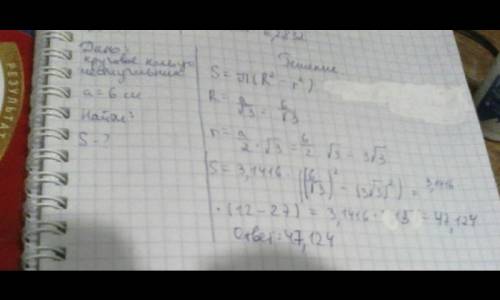 Дано:
круговое кольцо
шестиугольник
a = 6 см
Найти:
S - ?
Решение
S = π(R² - r²)
R = a/√3 = 6/√3
r = a/2 · √3 = 6/2 √3 = 3√3
S = 3,1416 ((6/√3)² - (3√3)²) = 3,1416
· (12 - 27) = 3,1416 · 15 = 47,124
Ответ: 47,124
РЕЗУЛЬТАТ